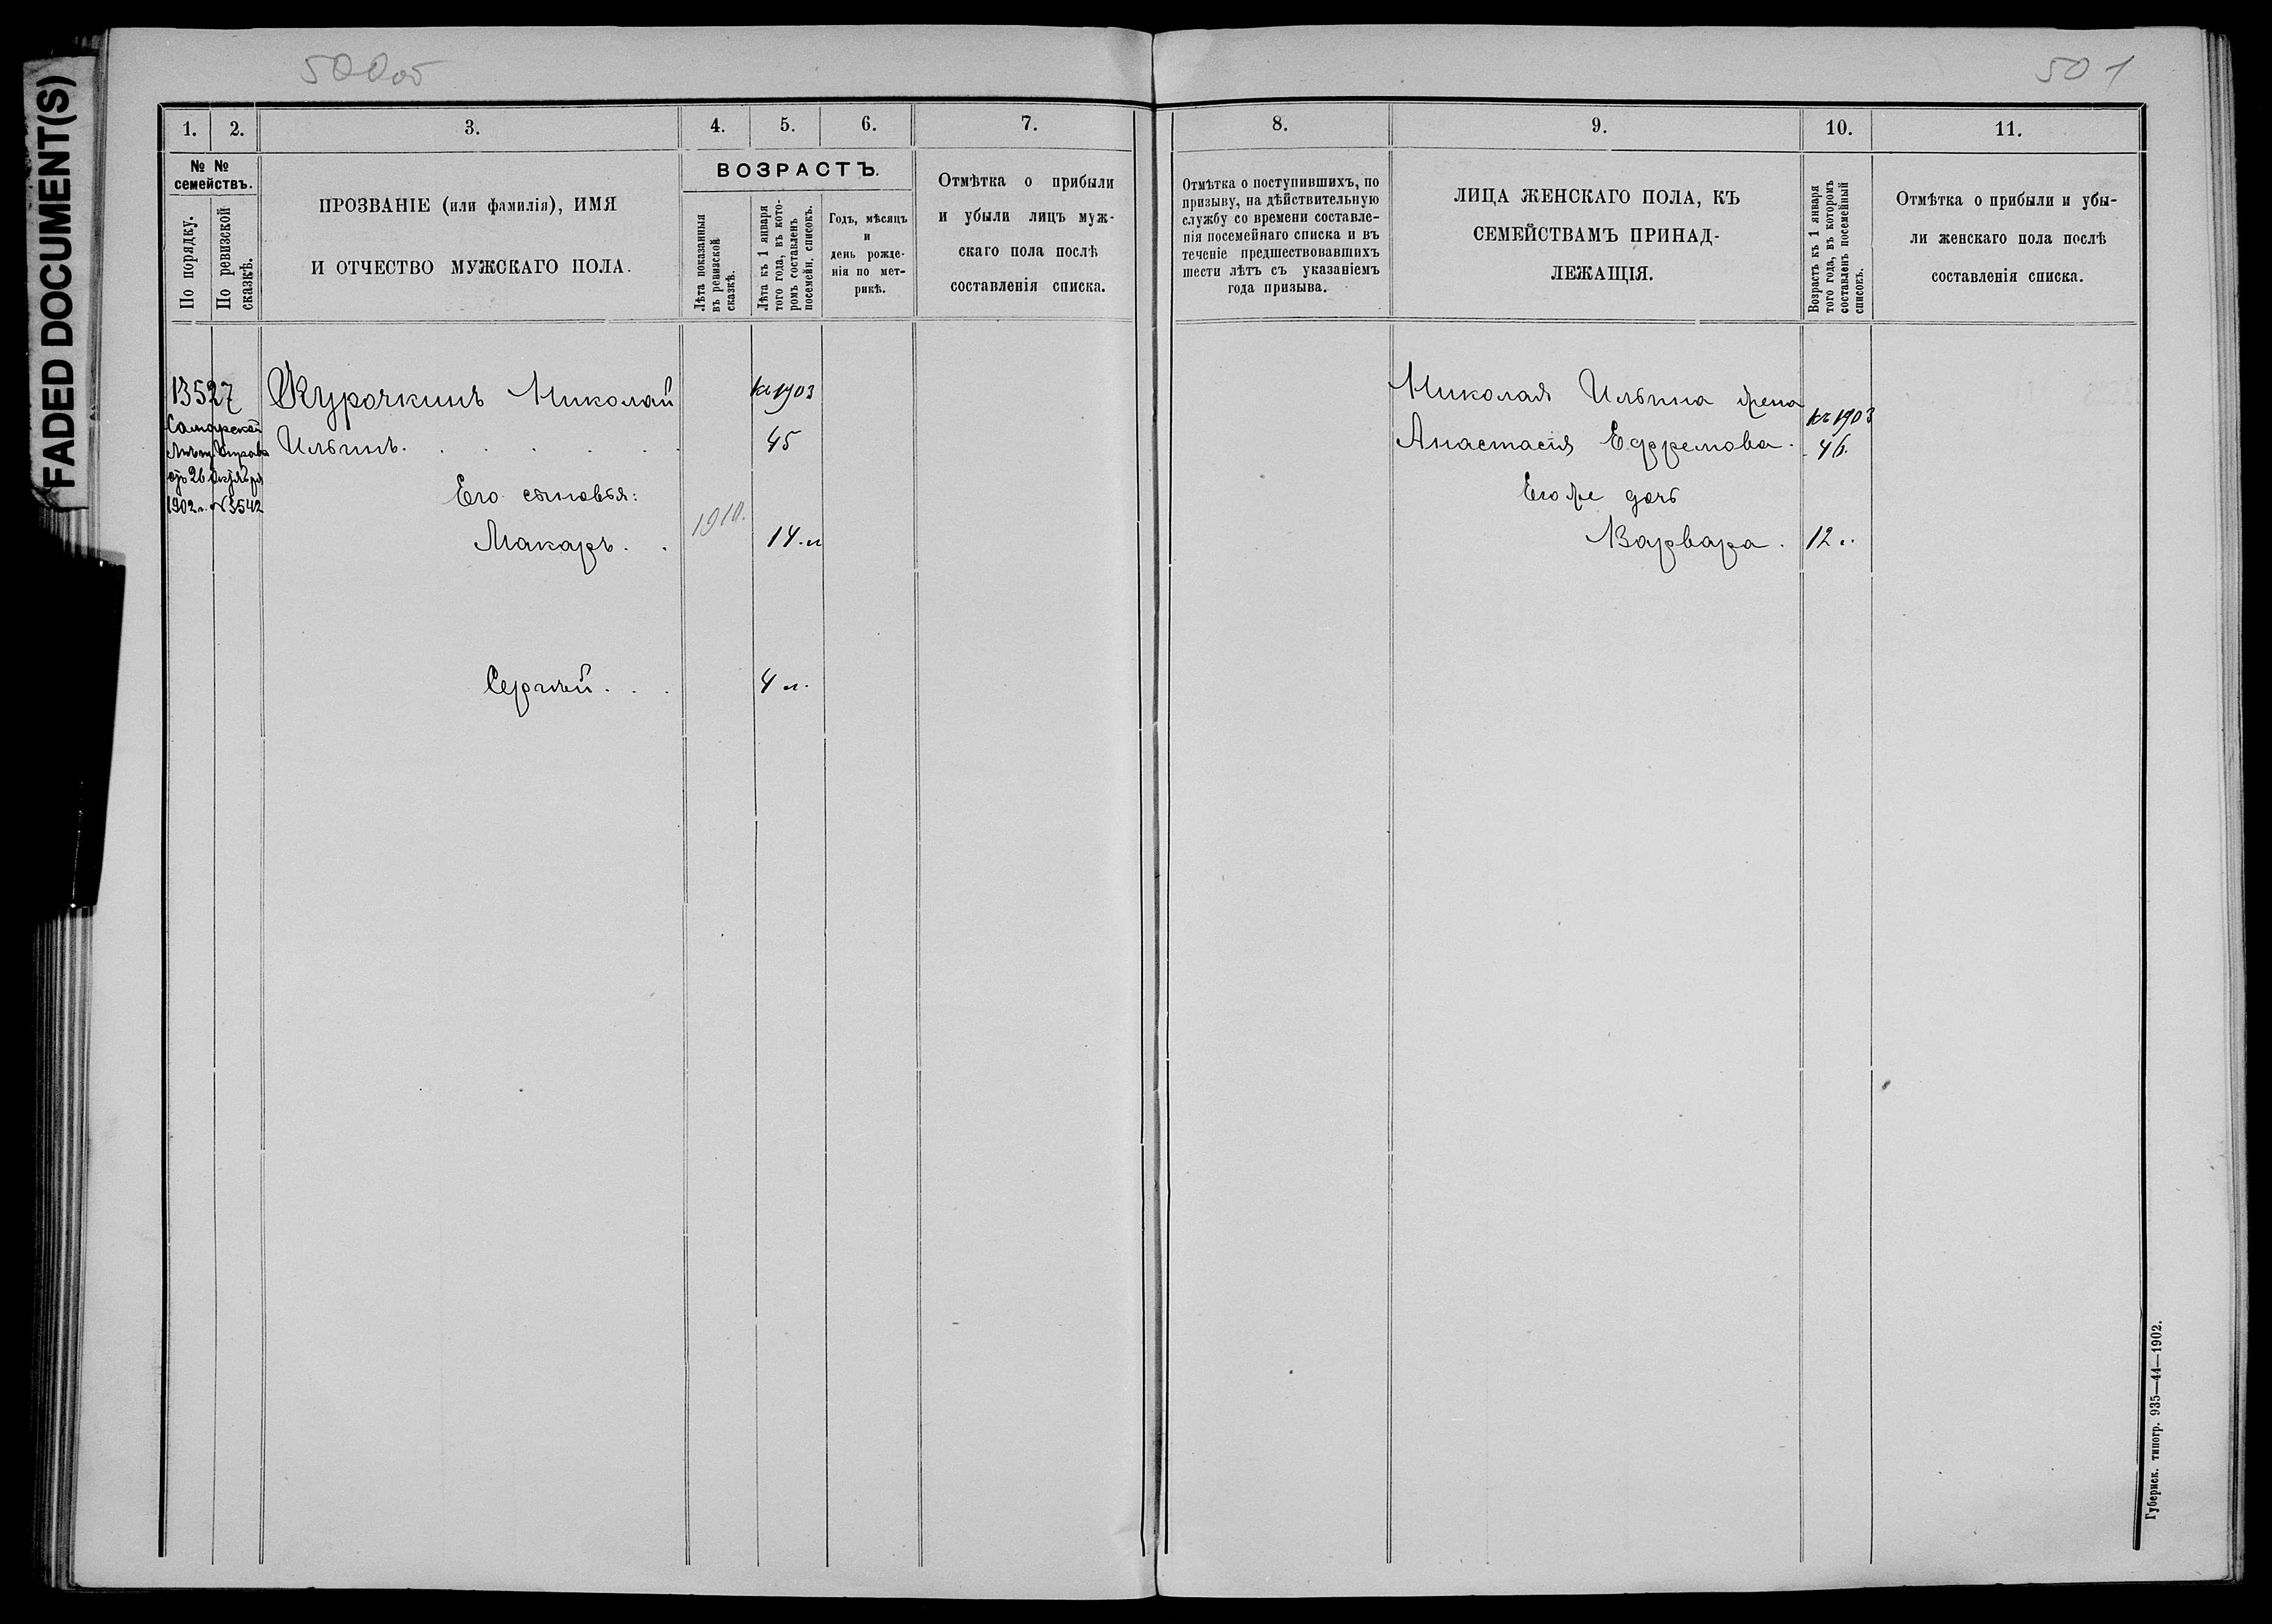 FADED DOCUMENT(S)
500об
501
1. 2. 3. 4. 5. 6. 7.
№ № семействъ.
По порядку.
По ревизской сказкѣ.
ПРОЗВАНІЕ (или фамилія), ИМЯ
И ОТЧЕСТВО МУЖСКАГО ПОЛА.
ВОЗРАСТЪ.
Лѣта показанныя
въ ревизской
сказкѣ.
Лѣта къ 1 января
того года, въ кото-
ромъ составленъ
посемейн. списокъ.
Годъ, мѣсяцъ
и
день рожде-
нія по мет-
рикѣ.
Отмѣтка о прибыли
и убыли лицъ муж-
скаго пола послѣ
составленія списка.
13527
Самарской
от 26 октября
1902 г. № 3542
Курочкинъ Николай
Ильинъ.
къ 1903
45
Его сыновья:
Макаръ.
1910.
14. л
Сергѣй.
4 л.
8. 9. 10. 11.
Отмѣтка о поступившихъ, по
призыву, на дѣйствительную
службу со времени составле-
нія посемейнаго списка и въ
теченіе предшествовавшихъ
шести лѣтъ съ указаніемъ
года призыва.
ЛИЦА ЖЕНСКАГО ПОЛА, КЪ
СЕМЕЙСТВАМЪ ПРИНАД-
ЛЕЖАЩІЯ.
Возрастъ къ 1 января
того года, въ которомъ
составленъ посемейный
списокъ.
Отмѣтка о прибыли и убы-
ли женскаго пола послѣ
составленія списка.
Николая Ильина жена
къ 1903
Анастасія Ефремова.
46.
Его же дочь
Варвара.
12 л.
Губернск. типогр. 935—44—1902.